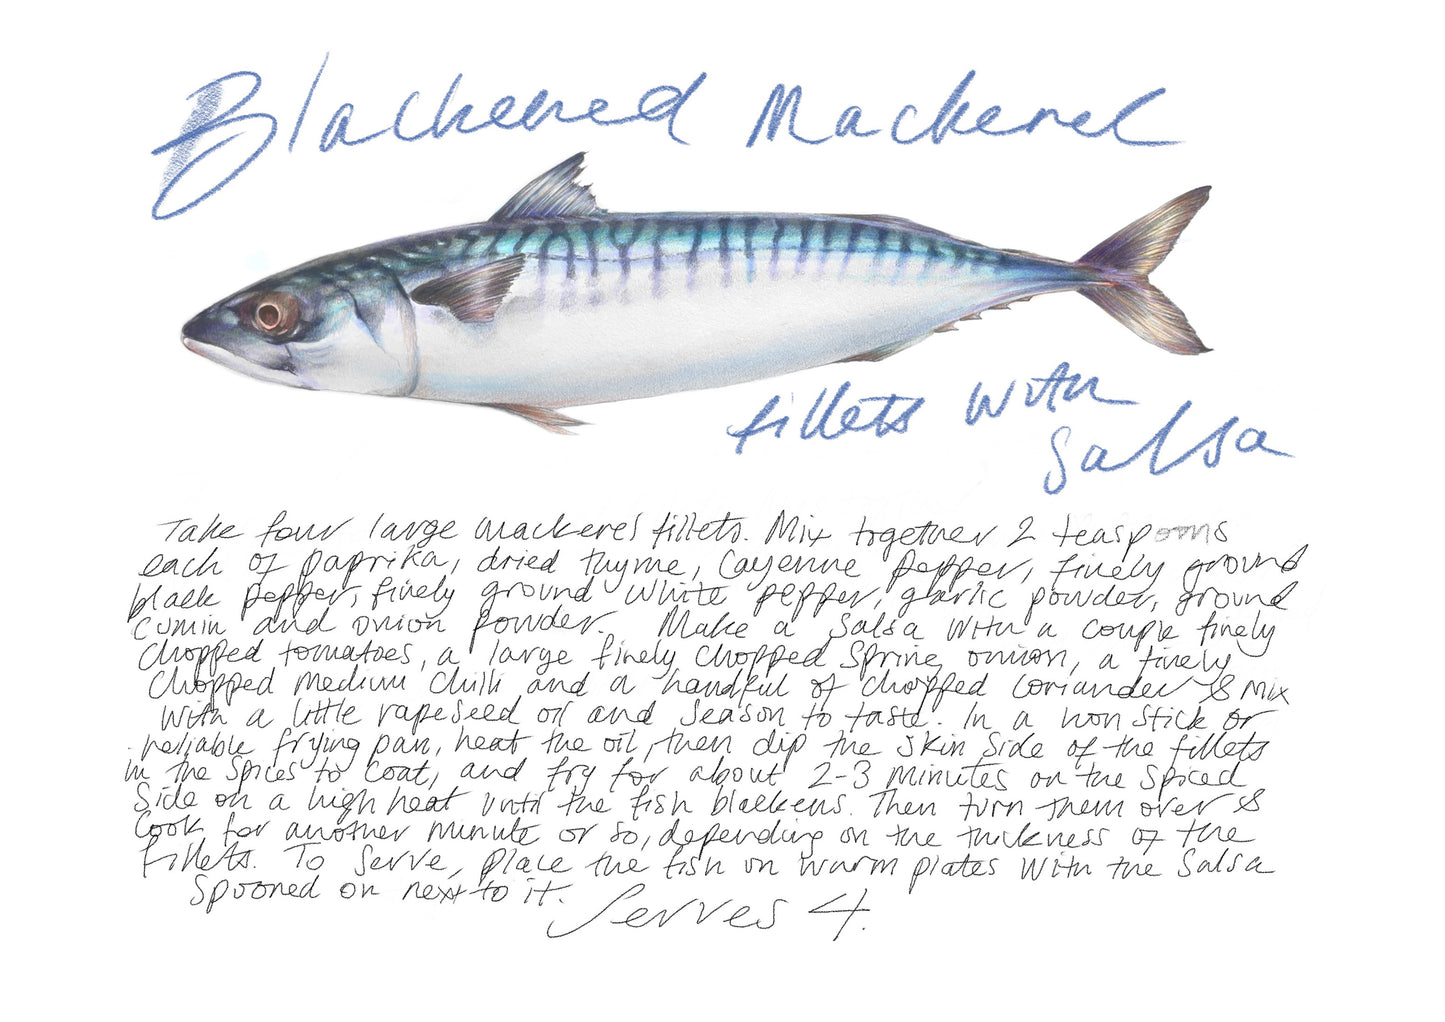 Blackened Mackerel
fillets with
Salsa
Take four large mackerel fillets. Mix together 2 teaspoons
each of paprika, dried thyme, Cayenne pepper, finely ground
black pepper, finely ground white pepper, garlic powder, ground
cumin and onion powder. Make a salsa with a couple finely
chopped tomatoes, a large finely chopped spring onion, a finely
chopped medium chilli and a handful of chopped coriander & mix
with a little rapeseed oil and season to taste. In a non stick or
reliable frying pan, heat the oil, then dip the skin side of the fillets
in the spices to coat, and fry for about 2-3 minutes on the spiced
side on a high heat until the fish blackens. Then turn them over &
cook for another minute or so, depending on the thickness of the
fillets. To serve, place the fish on warm plates with the salsa
spooned on next to it.
Serves 4.